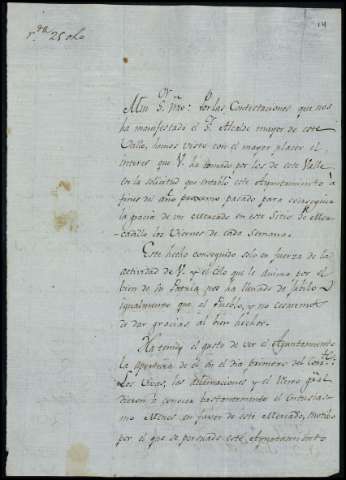 14
r.da 25 oho
Muy S.or mío: Por las Contestaciones que nos
ha manifestado el S.r Alcalde mayor de este
Valle, hemos visto con el mayor placer el
interes que V. ha tomado por los de este Valle
en la solicitud que entabló este Ayuntamiento á
fines del año proximo pasado para conseguir
la gracia de un Mercado en este Sitio de Mer-
cadillo los Viernes de cada Semana.
Este hecho conseguido solo en fuerza de la
actividad de V. y el celo que le anima por el
bien de la Patria, nos ha llenado de jubilo é
igualmente que al Pueblo, y no cesaremos
de dar gracias al bien hechor.
Ha tenido el gusto de ver el Ayuntamiento
la apertura de él en el dia primero del Corr.te
Los Vivas, las aclamaciones y el Verso que
dieron a conocer bastantemente el Entusias-
mo en favor de este Mercado, motivo
por el que se persuade este Ayuntamiento